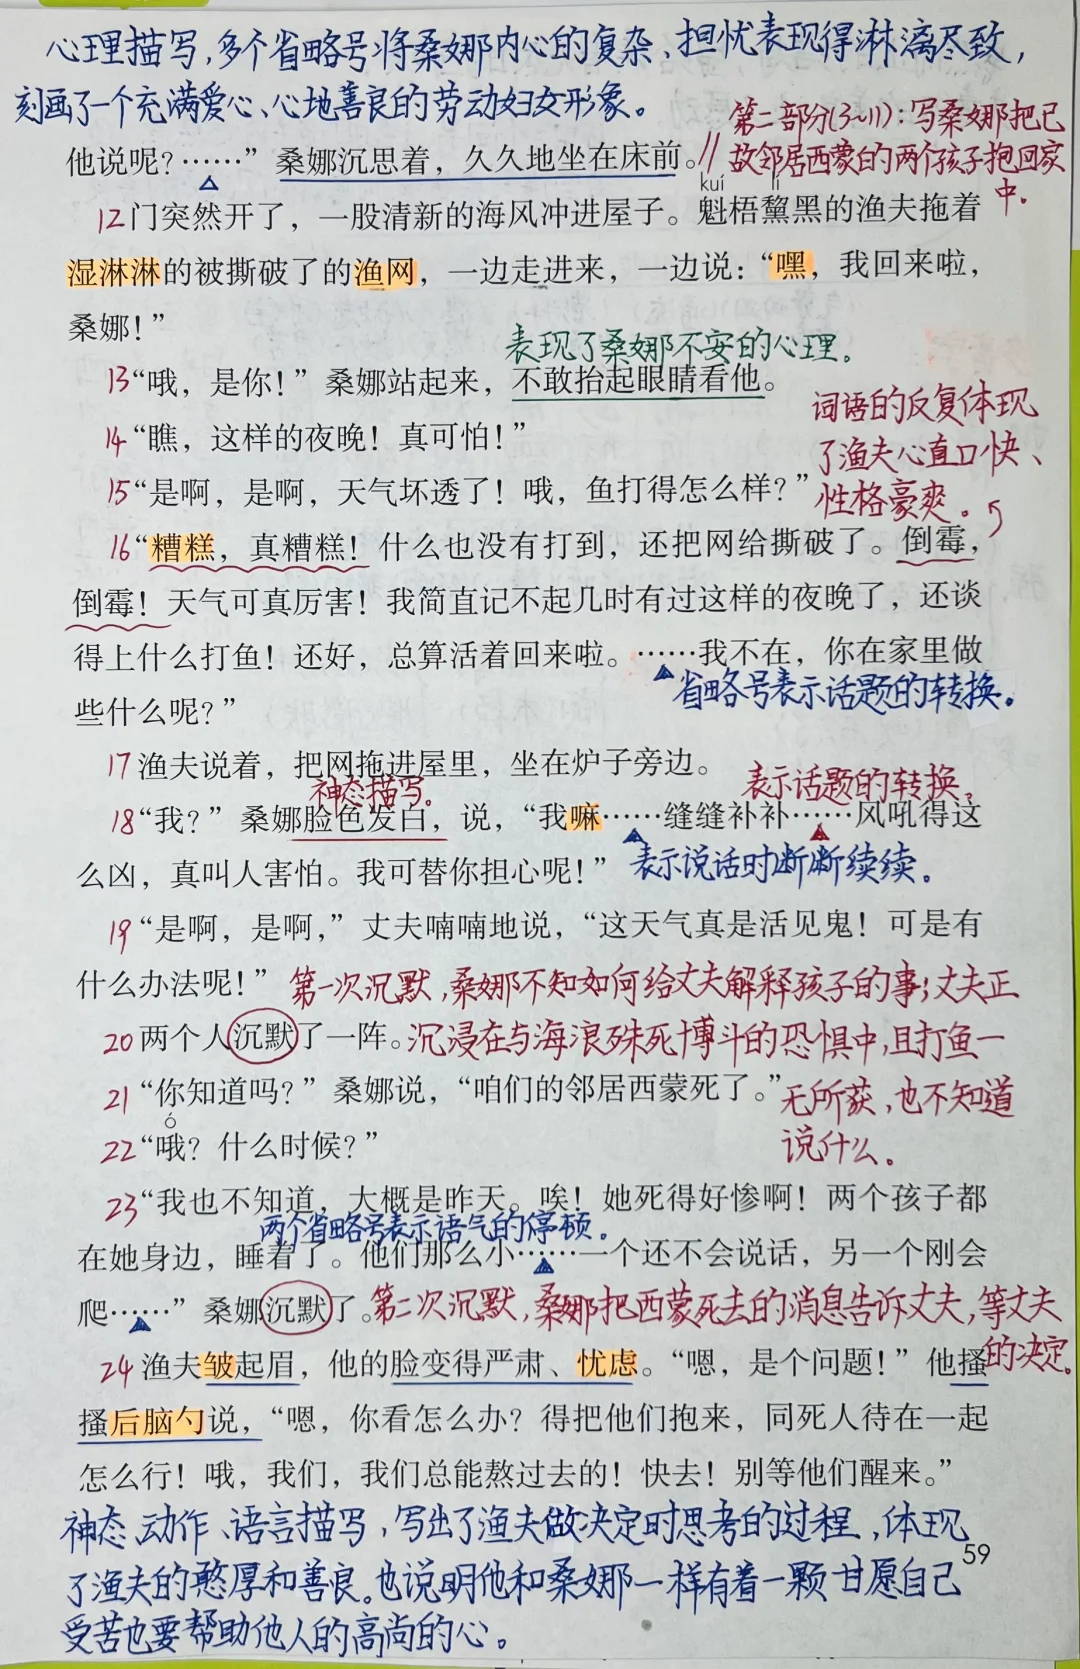 心理描写,多个省略号将桑娜内心的复杂、担忧表现得淋漓尽致,
刻画了一个充满爱心、心地善良的劳动妇女形象。
第二部分(3~11):写桑娜把已
他说呢?……”桑娜沉思着,久久地坐在床前。//
故邻居西蒙的两个孩子抱回家
中.
kuí lí
12门突然开了,一股清新的海风冲进屋子。魁梧黧黑的渔夫拖着
湿淋淋的被撕破了的渔网,一边走进来,一边说:“嘿,我回来啦,
桑娜!”
表现了桑娜不安的心理。
13“哦,是你!”桑娜站起来,不敢抬起眼睛看他。
词语的反复体现
14“瞧,这样的夜晚!真可怕!”
了渔夫心直口快、
15“是啊,是啊,天气坏透了!哦,鱼打得怎么样?”
性格豪爽。
16“糟糕,真糟糕!什么也没有打到,还把网给撕破了。倒霉,
倒霉!天气可真厉害!我简直记不起几时有过这样的夜晚了,还谈
得上什么打鱼!还好,总算活着回来啦。……我不在,你在家里做
省略号表示话题的转换。
些什么呢?”
17渔夫说着,把网拖进屋里,坐在炉子旁边。
神态描写。
表示话题的转换。
18“我?”桑娜脸色发白,说,“我嘛……缝缝补补……风吼得这
么凶,真叫人害怕。我可替你担心呢!”
表示说话时断断续续。
19“是啊,是啊,”丈夫喃喃地说,“这天气真是活见鬼!可是有
什么办法呢!”
第一次沉默,桑娜不知如何给丈夫解释孩子的事;丈夫正
20两个人沉默了一阵。
沉浸在与海浪殊死博斗的恐惧中,且打鱼一
21“你知道吗?”桑娜说,“咱们的邻居西蒙死了。”
无所获,也不知道
ó
22“哦?什么时候?”
说什么。
23“我也不知道,大概是昨天。唉!她死得好惨啊!两个孩子都
两个省略号表示语气的停顿。
在她身边,睡着了。他们那么小……一个还不会说话,另一个刚会
爬……”桑娜沉默了。
第二次沉默,桑娜把西蒙死去的消息告诉丈夫,等丈夫
的决定。
24渔夫皱起眉,他的脸变得严肃、忧虑。“嗯,是个问题!”他搔
搔后脑勺说,“嗯,你看怎么办?得把他们抱来,同死人待在一起
怎么行!哦,我们,我们总能熬过去的!快去!别等他们醒来。”
神态、动作、语言描写,写出了渔夫做决定时思考的过程,体现
59
了渔夫的憨厚和善良。也说明他和桑娜一样有着一颗甘愿自己
受苦也要帮助他人的高尚的心。